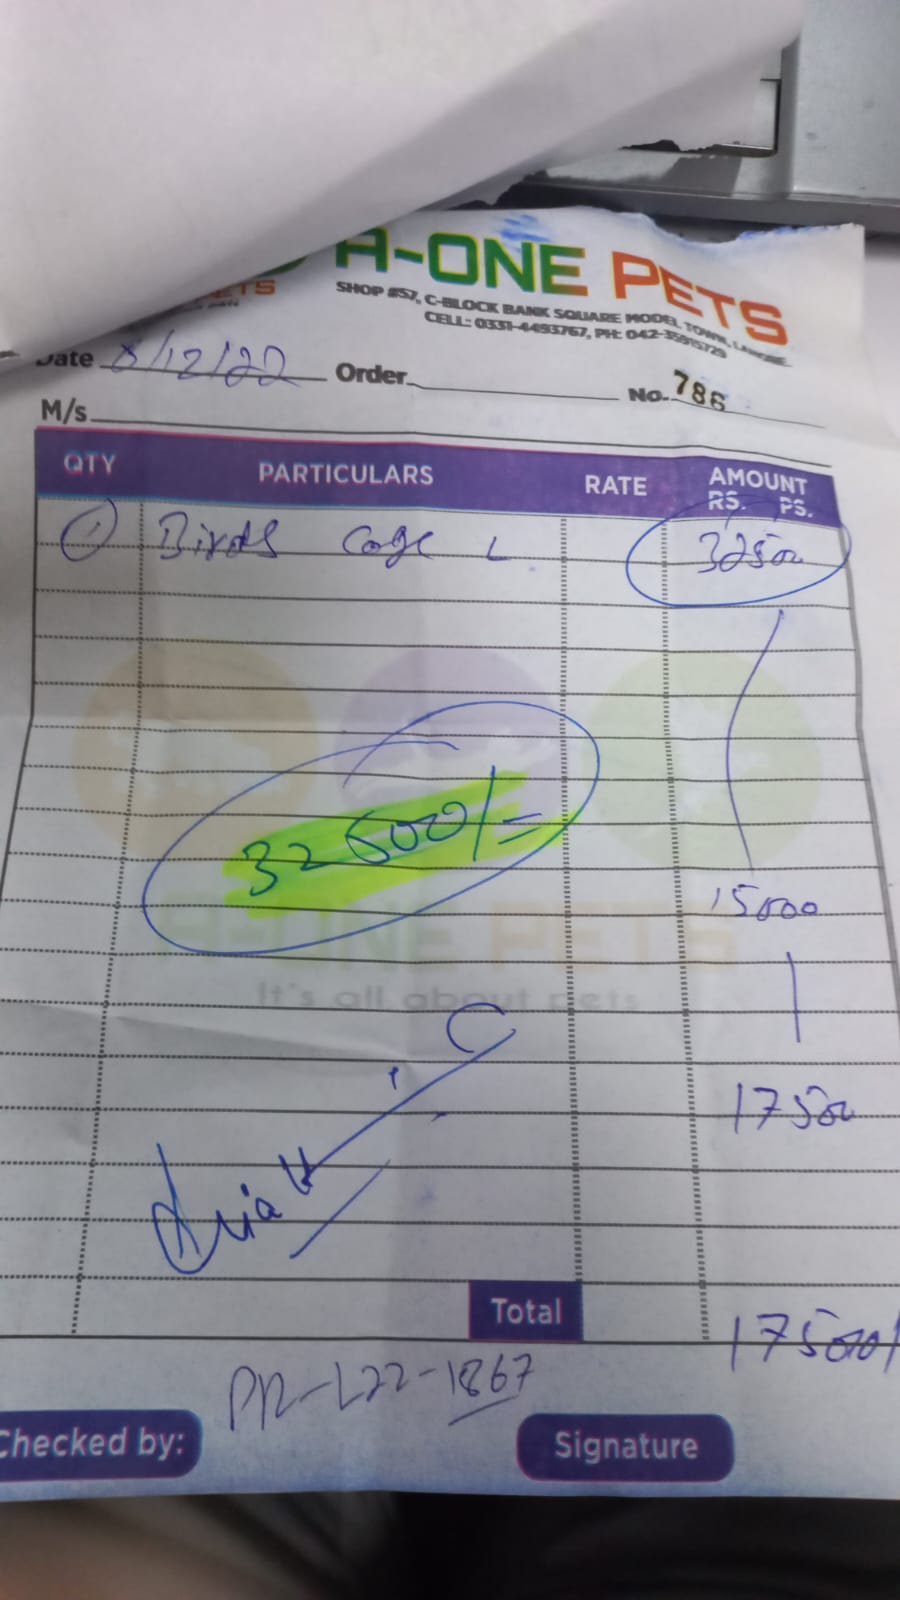 A-ONE PETS
PETS
SHOP #57, C-BLOCK BANK SQUARE MODEL TOWN, LAHORE
CELL: 0331-4493767, PH: 042-35915729
Date 8/12/22 Order No. 786
M/s
QTY PARTICULARS RATE AMOUNT
RS. PS.
1 Birds Cage L 32500
32500/=
15000
A-ONE PETS
It's all about pets
17500
Total 17500/
PR-L22-1867
Checked by: Signature